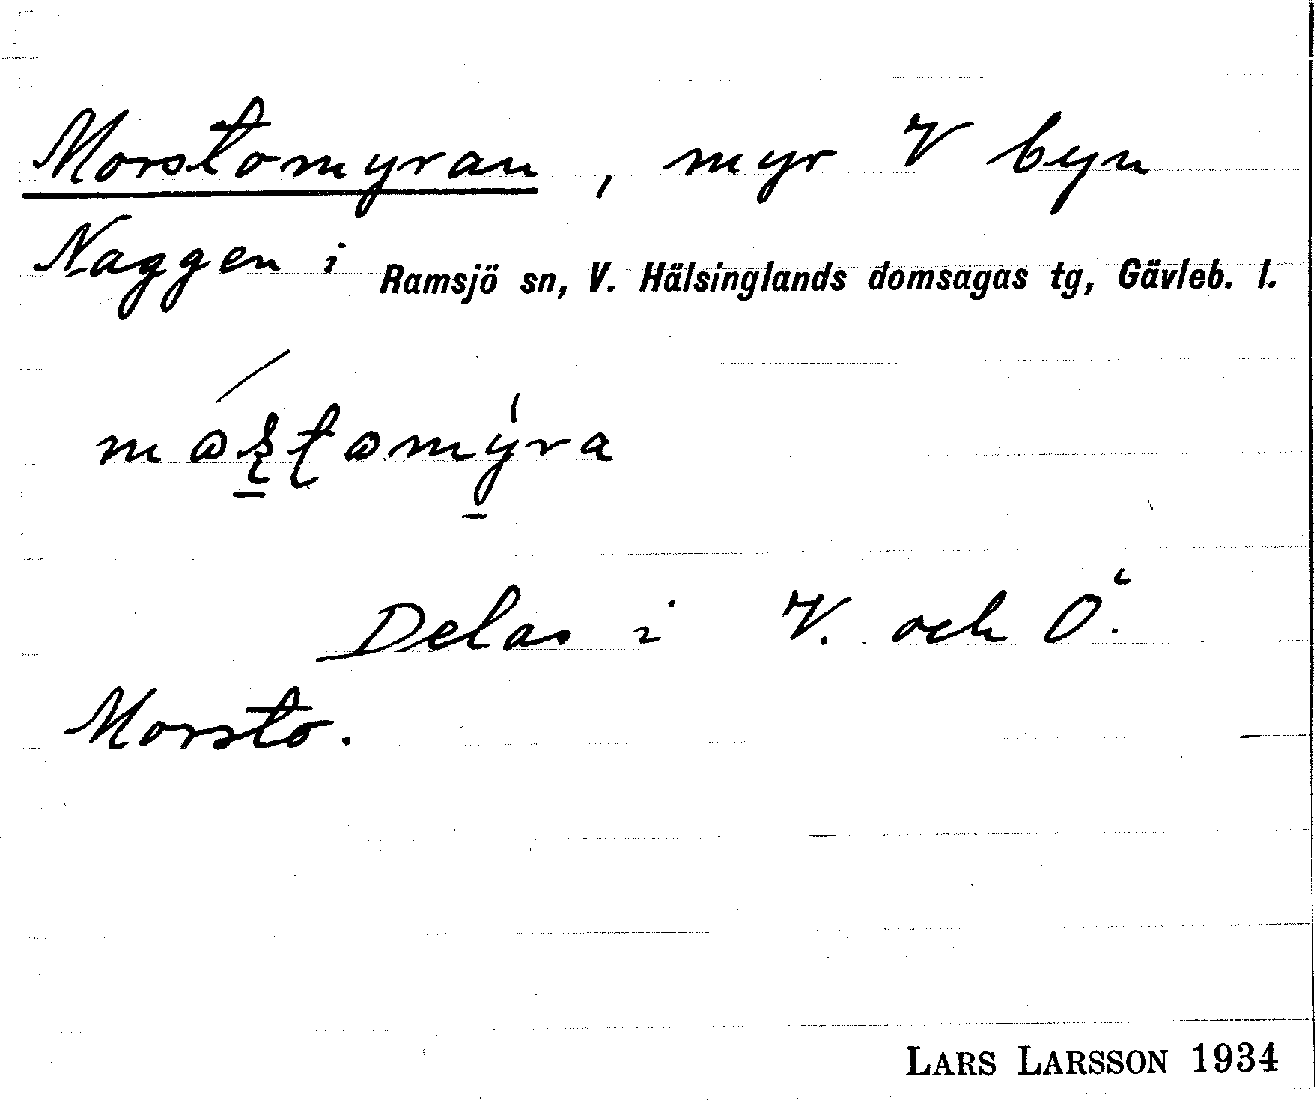 Morstomyran, myr V byn
Naggen i Ramsjö sn, V. Hälsinglands domsagas tg, Gävleb. l.
Delas i V. och Ö.
Morsto.
LARS LARSSON 1934